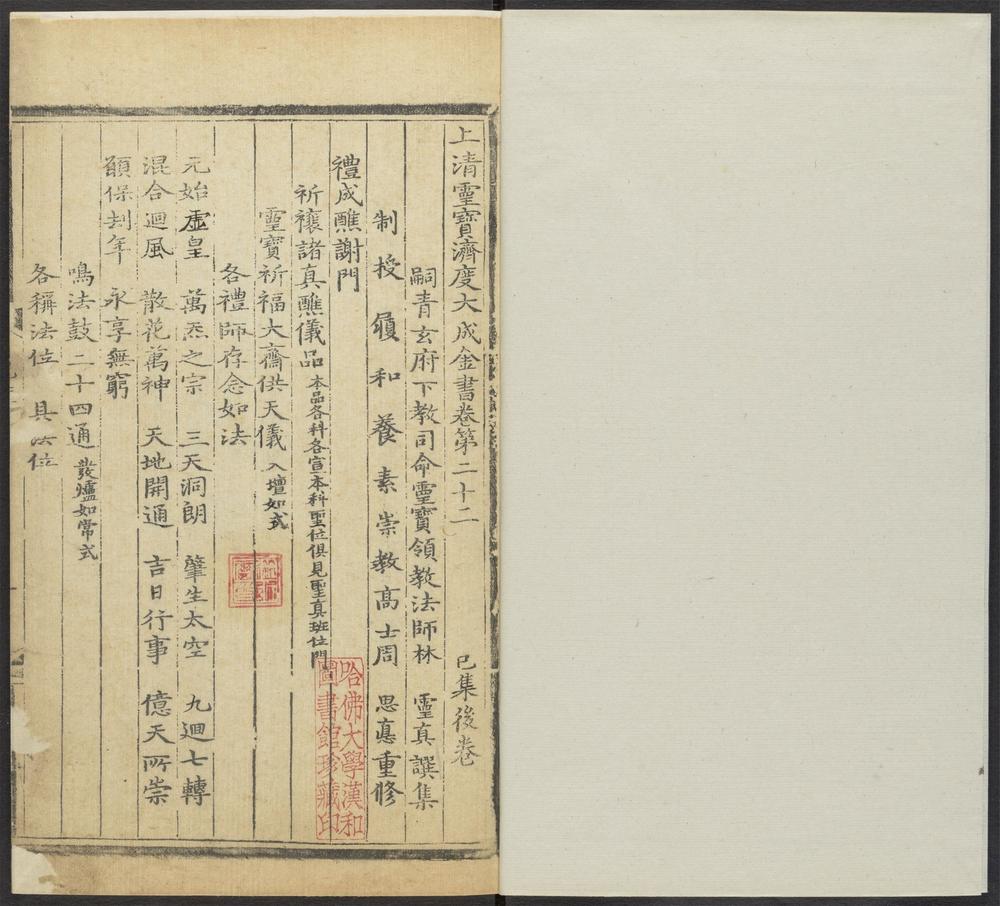 上清靈寶濟度大成金書卷第二十二 巳集後卷
嗣青玄府下教司命靈寶領教法師林 靈真譔集
制授履和養素崇教高士周 思悳重修
禮成醮謝門
祈禳諸真醮儀品 本品各科各宣本科聖位俱見聖真班位門
靈寶祈福大齋供天儀 入壇如式
各禮師存念如法
元始虛皇 萬炁之宗 三天洞朗 肇生太空 九廻七轉
混合迴風 散花萬神 天地開通 吉日行事 億天所崇
願保刧年 永享無窮
鳴法鼓二十四通 發爐如常式
各稱法位 具法位
哈佛大學漢和
圖書館珍藏印